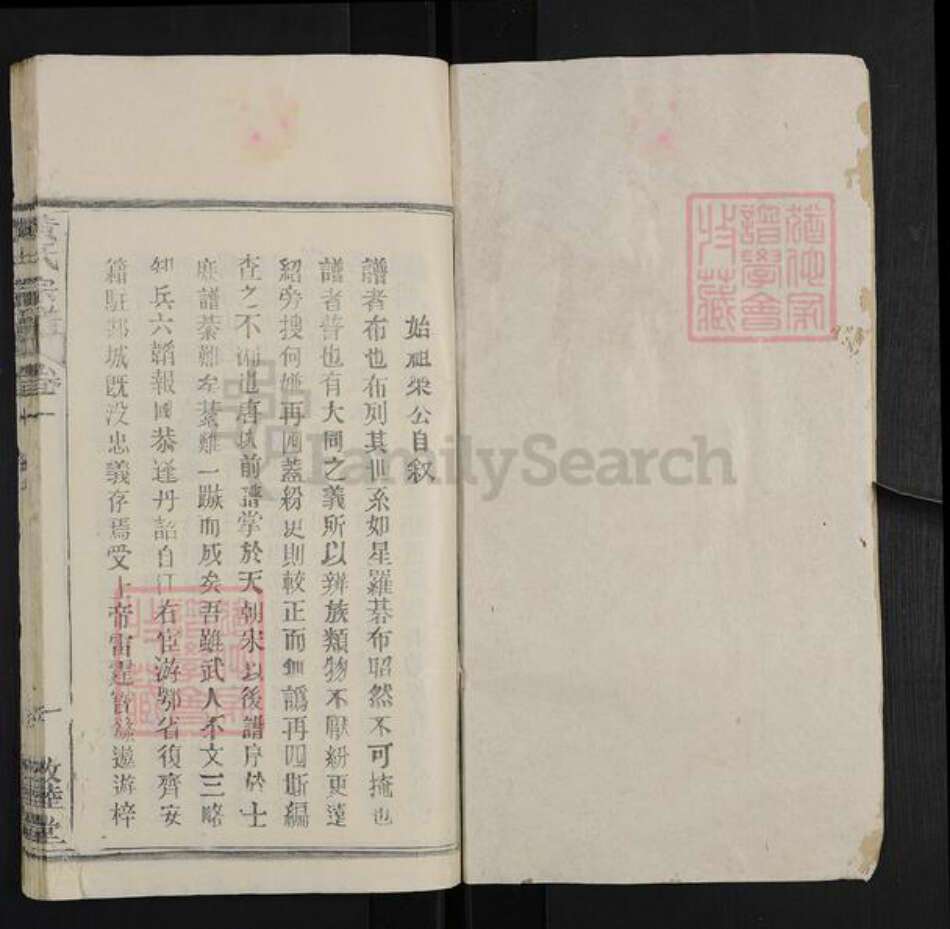 始祖榮公自叙
譜者布也布列其世系如星羅碁布昭然不可掩也
譜者普也有大同之義所以辨族類物不厭紛更遠
紹旁搜何嫌再四蓋紛更則較正而無譌再四斯編
查之不漏追唐以前譜掌於天朝宋以後譜序於士
庶譜綦難矣綦難一蹴而成矣吾雖武人不文三略
知兵六韜報國恭逢丹詔自江右宦游鄂省復齊安
籍駐邾城既没忠義存焉受上帝雷霆遨游梓
氏宗譜
卷
上
一
敦睦堂
猶他家
譜學會
收藏
猶他家
譜學會
收藏
FamilySearch